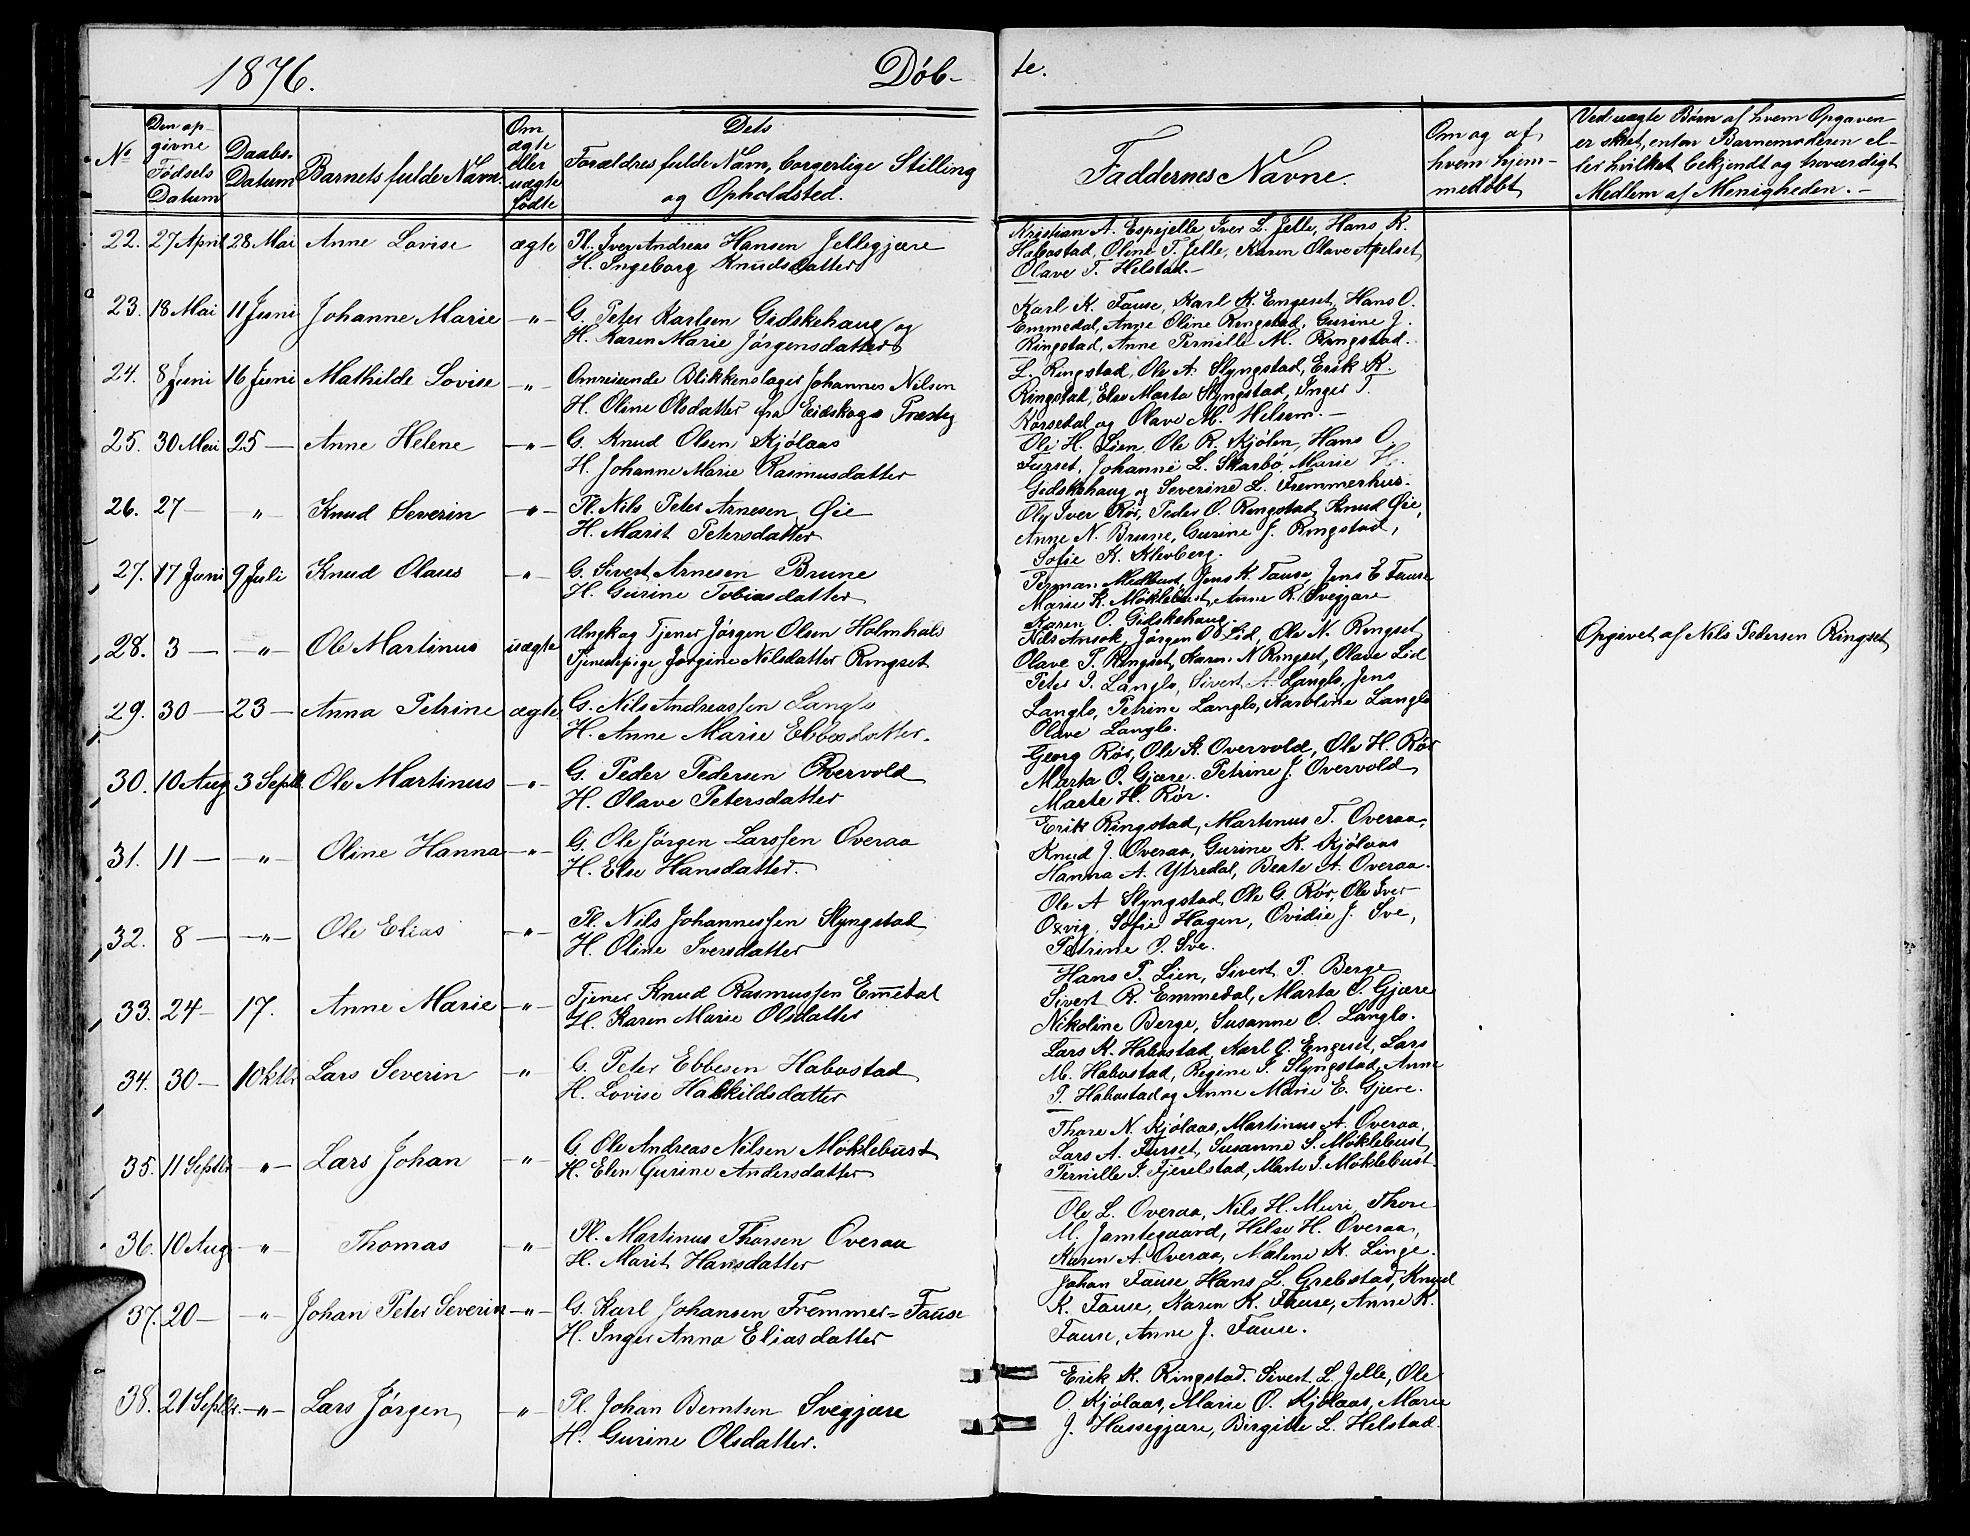 1876. Døb- te.
No Den op-givne Fødsels Datum Daabs-Datum Barnets fulde Navn. Om ægte eller uægte fødte Dets Forældres fulde Navn, borgerlige Stilling og Opholdsted. Faddernes Navne. Om og af hvem hjem-medøbt Ved uægte Børn af hvem Opgaven er skeet, enten Barnemoderen el-ler hvilket bekjendt og troværdigt Medlem af Menigheden.-
22. 27 April 28 Mai Anne Lovise ægte Pl. Iver Andreas Hansen Jellegjære
H. Ingeborg Knudsdatter
Kristian A. Espejelle, Iver L. Jelle, Hans K.
Habostad, Oline T. Jelle, Karen Olave Apelset
Olave T. Helstad.-
23. 18 Mai 11 Juni Johanne Marie -"- G. Peter Karlsen Gidskehaug og
H. Karen Marie Jørgensdatter
Karl K. Fause, Karl K. Engeset, Hans O.
Emmedal, Anne Oline Ringstad, Gurine J.
Ringstad, Anne Pernille M. Ringstad.
24. 8 Juni 16 Juni Mathilde Lovise -"- Omreisende Blikkenslager Johannes Nilsen
H. Oline Olsdatter fra Eidskogs Præstg
L. Ringstad, Ole A. Slyngstad, Erik K.
Ringstad, Elev Marta Slyngstad, Inger T.
Rørsedal og Olave M. Helsem.-
25. 30 Mai 25 - Anne Helene -"- G. Knud Olsen Kjølaas
H. Johanne Marie Rasmusdatter
Ole H. Lien, Ole R. Kjølen, Hans O.
Furset, Johanne L. Skarbø, Marie H.
Gidskehaug og Severine L. Fremmerhus.
26. 27 - " Knud Severin -"- Pl. Nils Peter Arnesen Øie
H. Marit Petersdatter
Ole Iver Rør, Peder O. Ringstad, Knud Øie,
Anne N. Brune, Gurine J. Ringstad,
Sofie K. Klevberg.
27. 17 Juni 9 Juli Knud Olaus -"- G. Sivert Arnesen Brune
H. Gurine Tobiasdatter
Perman Melbust, Jens K. Fause, Jens E Fause
Marie K. Møklebust, Anne R. Svegjære
Karen O. Gidskehaug.
28. 3 - -"- Ole Martinus uægte Ungk og Tjener Jørgen Olsen Holmhals
Tjenestpige Jørgine Nilsdatter Ringset
Nils Ansok, Jørgen O Lid, Ole N. Ringset
Olave P. Ringset, Karen N Ringset, Olave Lid
Opgivet af Nils Pedersen Ringset
29. 30 - 23 - Anna Petrine ægte G. Nils Andreassen Langlo
H. Anne Marie Ebbesdatter.
Peter P. Langlo, Sivert A. Langlo, Jens
Langlo, Petrine Langlo, Karoline Langlo
Olave Langlo.
30. 10 Aug 3 Septb. Ole Martinus -"- G. Peder Pedersen Overvold
H. Olave Petersdatter
Georg Rør, Ole A. Overvold, Ole H. Rør
Marta O. Gjære. Petrine J. Overvold
Marte H. Rør.
31. 11 - -"- Oline Hanna -"- G. Ole Jørgen Larssen Overaa
H. Else Hansdatter.
Erik Ringstad, Martinus T. Overaa,
Knud J. Overaa, Gurine K. Kjølaas
Hanna A. Ytredal, Beate A. Overaa.
32. 8 - -"- Ole Elias -"- Pl. Nils Johannessen Slyngstad
H. Oline Iversdatter
Ole A Slyngstad, Ole G. Rør, Ole Iver
Oxvig, Sofie Hagen, Ovidie J. Sve,
Petrine O. Sve.
33. 24 - 17. Anne Marie -"- Tjener Knud Rasmussen Emedal
H. Karen Marie Olsdatter
Hans P. Lien, Sivert P. Berge
Sivert R. Emmedal, Marta O. Gjære
Nikoline Berge, Susanne O. Langlo.
34. 30 - 1 Oktbr Lars Severin -"- G. Peter Ebbesen Habostad
H. Lovise Halkildsdatter
Lars K. Habostad, Karl O. Engeset, Lars
M. Habostad, Regine I. Slyngstad, Anne
P. Habostad og Anne Marie E. Gjære.
35. 11 Septbr -"- Lars Johan -"- G. Ole Andreas Nilsen Møklebust
H. Elen Gurine Andersdatter
Thore N. Kjølaas, Martinus A. Overaa,
Lars A. Furset, Susanne S. Møklebust,
Pernille I. Fjerelstad, Marte J. Møklebust.
36. 10 Aug -"- Thomas -"- Pl. Martinus Thorsen Overaa
H. Marit Hansdatter
Ole L. Overaa, Nils H. Muri, Thore
M. Jamtegaard, Helse H. Overaa,
Karen A. Overaa, Malene K. Linge.
37. 20 - -"- Johan Peter Severin -"- G. Karl Johansen Fremmer-Fause
H. Inger Anna Eliasdatter
Johan Fause, Hans L. Grebstad, Knud
K. Fause, Karen K. Fause, Anne K.
Fause, Anne J. Fause.
38. 21 Septbr. -"- Lars Jørgen -"- Pl. Johan Berntsen Svegjære
H. Gurine Olsdatter.
Erik K. Ringstad. Sivert L. Jelle, Ole
O. Kjølaas, Marie O. Kjølaas, Marie
J. Hassegjære, Birgitte L. Helstad.